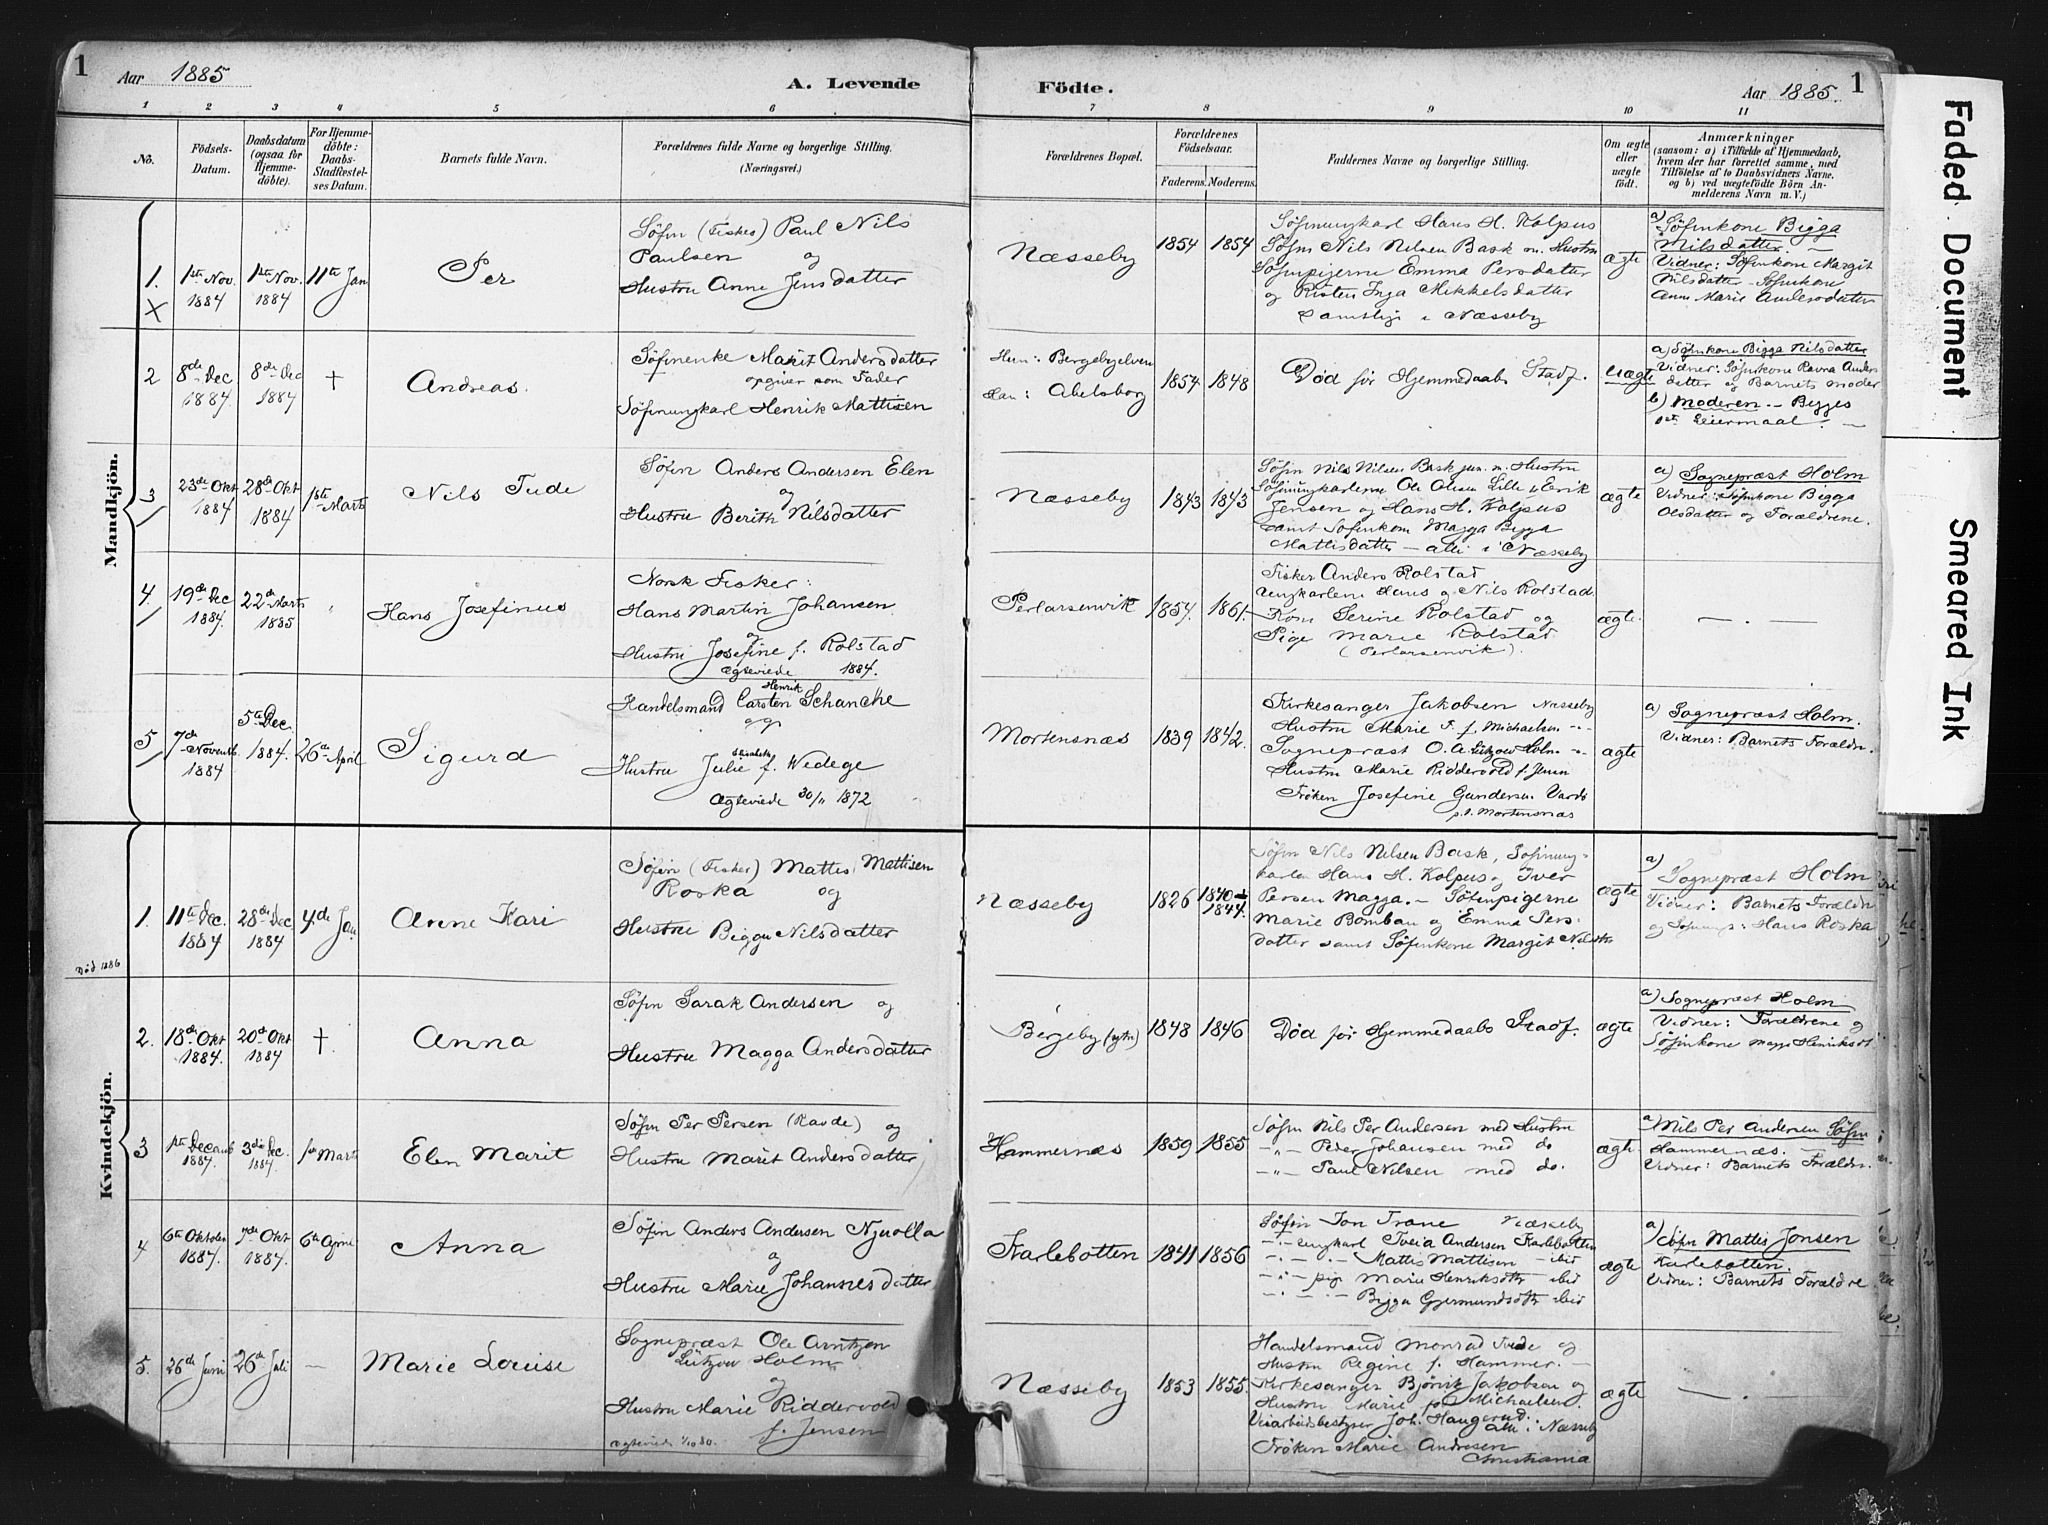 1
Aar 1885
A. Levende
Födte.
Aar 1885.
1
1 2 3 4 5 6 7 8 9 10 11
No.
Födsels-
Datum.
Daabsdatum
(ogsaa for
Hjemme-
döbte).
For Hjemme-
döbte:
Daabs-
Stadfæstel-
ses Datum.
Barnets fulde Navn.
Forældrenes fulde Navne og borgerlige Stilling.
(Næringsvei.)
Forældrenes Bopæl.
Forældrenes
Födselsaar.
Faderens. Moderens.
Faddernes Navne og borgerlige Stilling.
Om ægte
eller
uægte
födt.
Anmærkninger
(saasom: a) i Tilfælde af Hjemmedaab,
hvem der har forrettet samme, med
Tilföielse af to Daabsvidners Navne.
og b) ved uægtefödte Börn An-
melderens Navn m. V.)
Mandkjön.
1.
X
1ste Nov.
1884
1ste Nov.
1884
11te Jan
Per
Söfin (Fisker) Paul Nils
Paulsen og
Hustru Anne Jensdatter
Næsseby
1854 1854
Söfinungkarl Hans H. Kolpus
Söfin Nils Nilsen Bask m. Hustru
Söfinpigerne Emma Persdatter
og Risten Inga Mikkelsdatter
samtlige i Næsseby
ægte
a) Söfinkone Bigga
Nilsdatter.
Vidner: Söfinkone Margit
Nilsdatter - Söfinkone
Anne Marie Andersdatter
2
8de Dec
1884.
8de Dec
1884
†
Andreas.
Söfinenke Marit Andersdatter
opgiver som Fader
Söfinungkarl Henrik Mattisen
Hun: Bergebyelven
Han: Abelsborg
1854 1848
Död för Hjemmedaabs Stadf.
Uægte
a) Söfinkone Bigga Nilsdatter
Vidner: Söfinkone Ravna Anders
datter og Barnets moder
b) Moderen. - Begges
1ste Leiermaal. -
3
23de Okt
1884
28de Okt
1884
1ste Marts
Nils Tude
Söfin Anders Andersen Elen
og
Hustru Berith Nilsdatter
Næsseby
1843 1843
Söfin Nils Nilsen Bask jun. m. Hustru
Söfinungkarlerne Ole Olsen Lille & Erik
Jensen og Hans H. Kolpus
samt Söfinkone Magga Bigga
Mattisdatter - alle i Næsseby
ægte
a) Sognepræst Holm
Vidner: Söfinkone Bigga
Olsdatter og Forældrene.
4.
19de Dec
1884.
22de Marts
1885
"
Hans Josefinus
Norsk Fisker:
Hans Martin Johansen
og
Hustru Josefine f. Rolstad
Ægteviede 1884.
Perlarsenvik
1854. 1861.
Fisker Anders Rolstad
Ungkarlene Hans og Nils Rolstad
Kone Serine Rolstad og
Pige Marie Rolstad
(Perlarsenvik).
ægte.
— . —
5
7de
Novemb.
1884
5te Dec.
1884.
26de April
Sigurd
Henrik
Handelsmand Carsten Schanche
og
Elisabeth
Hustru Julie f. Wedege
Ægteviede 30/11 1872
Mortensnæs
1839 1842.
Kirkesanger Jakobsen Næsseby
Hustru Marie F. f. Michaelsen -"-
Sognepræst O. A. Lützow Holm -"-
Hustru Marie Riddervold f. Jensen
Fröken Josefine Gundersen Vardö
p. t. Mortensnæs
ægte
a) Sognepræst Holm.
Vidner: Barnets Forældre.
Kvindekjön.
1.
Död 1886
11te Dec.
1884
28de Dec
1884
4de Jan
Anne Kari
Söfin (Fisker) Mattis Mattisen
Roska og
Hustru Bigga Nilsdatter
Næsseby
1826 1840
1844.
Söfin Nils Nilsen Bask, Söfinung-
karlen Hans H. Kolpus og Iver
Persen Magga. - Söfinpigerne
Marie Bomban og Emma Pers-
datter samt Söfinkone Margit Nilsdtr
ægte
a)
Sognepræst Holm
Vidner: Barnets Forældre
og Söfinungk: Hans Roska
2.
18de Okt
1884.
20de Okt
1884
†.
Anna
Söfin Sarak Andersen og
Hustru Magga Andersdatter
Bergeby (ytre)
1848 1846
Död för Hjemmedaabs Stadf.
ægte
a) Sognepræst Holm
Vidner: Forældrene og
Söfinkone Magga Henriksdt.
3
1ste Decemb
1884.
3die Dec.
1884.
1ste Marts
Elen Marit
Söfin Per Persen (Ravde) og
Hustru Marit Andersdatter
Hammernæs
1859 1855
Söfin Nils Per Andersen med Hustru
-"- Peder Johansen med do
-"- Paul Nilsen med do.
ægte
a) Nils Per Andersen Söfin
Hammernæs.
Vidner: Barnets Forældre.
4
6te Oktober
1884.
7de Okt
1884.
6te April
Anna
Söfin Anders Andersen Njuolla
og
Hustru Marie Johannesdatter
Karlebotten
1841 1856
Söfin Jon Trane Næsseby
-"- ungkarl Andersen Karlebotten
-"- -"- Mattis Mattisen ibid
-"- pige Marie Henriksdtr ibid
-"- -"- Bigga Gjermundsdtr ibid
ægte
a) Söfin Mattis Jonsen
Karlebotten.
Vidner: Barnets Forældre.
5.
26de Juni
26de Juli
—
Marie Louise
Sognepræst Ole Arntzen
Lützow Holm
og
Hustru Marie Riddervold
f. Jensen
Ægteviede 80.
Næsseby
1853 1855.
Handelsmand Monrad Tvede og
Hustru Regine f. Hammer. -
Kirkesanger Björvik Jakobsen og
Hustru Marie f. Michaelsen.
Veiarbeidsbestyrer Joh. Haugerud.
alle i Næsseby
Fröken Marie Andresen
Christiania
ægte
— . —
Faded Document
Smeared Ink